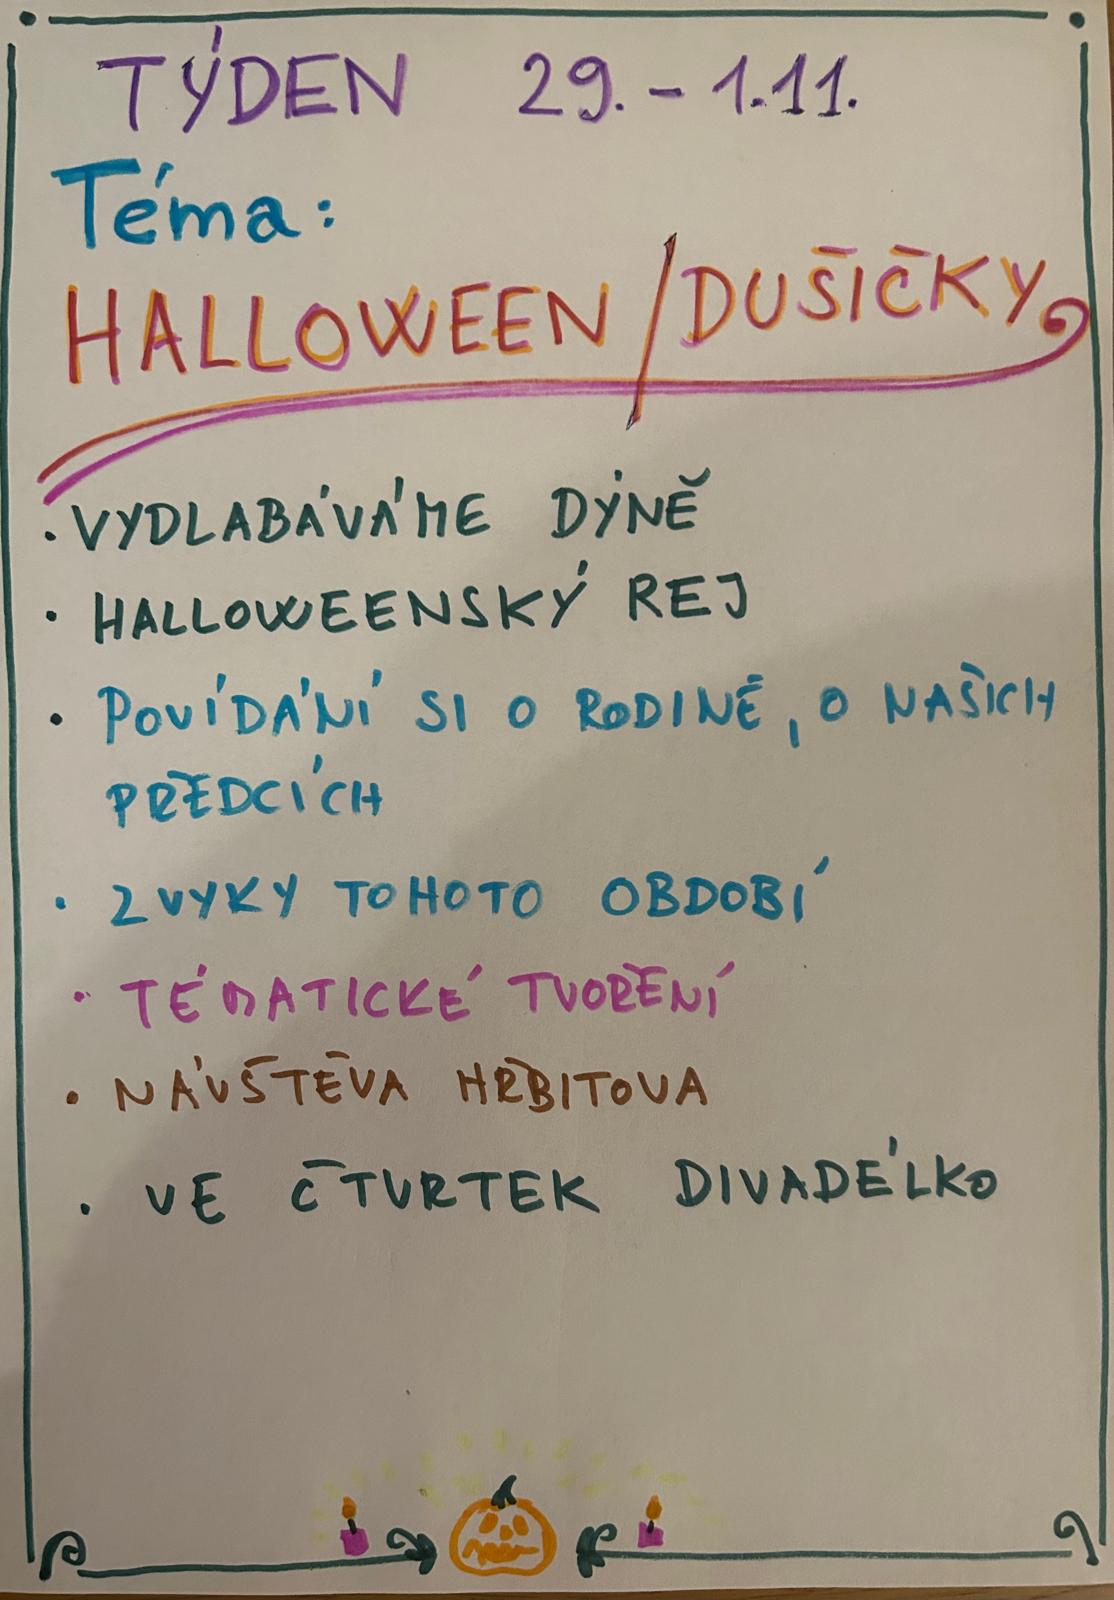 TÝDEN 29. - 1.11.
Téma:
HALLOWEEN / DUŠIČKY
· VYDLABÁVÁME DÝNĚ
· HALLOWEENSKÝ REJ
· POVÍDÁNÍ SI O RODINĚ, O NAŠICH
PŘEDCÍCH
· ZVYKY TOHOTO OBDOBÍ
· TÉMATICKÉ TVOŘENÍ
· NÁVŠTĚVA HŘBITOVA
· VE ČTVRTEK DIVADÉLKO